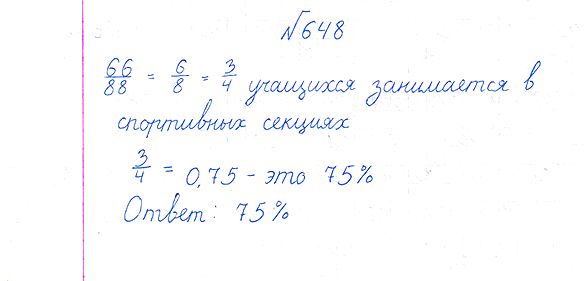 №648
66/88 = 6/8 = 3/4 учащихся занимается в
спортивных секциях
3/4 = 0,75 - это 75%
Ответ: 75%